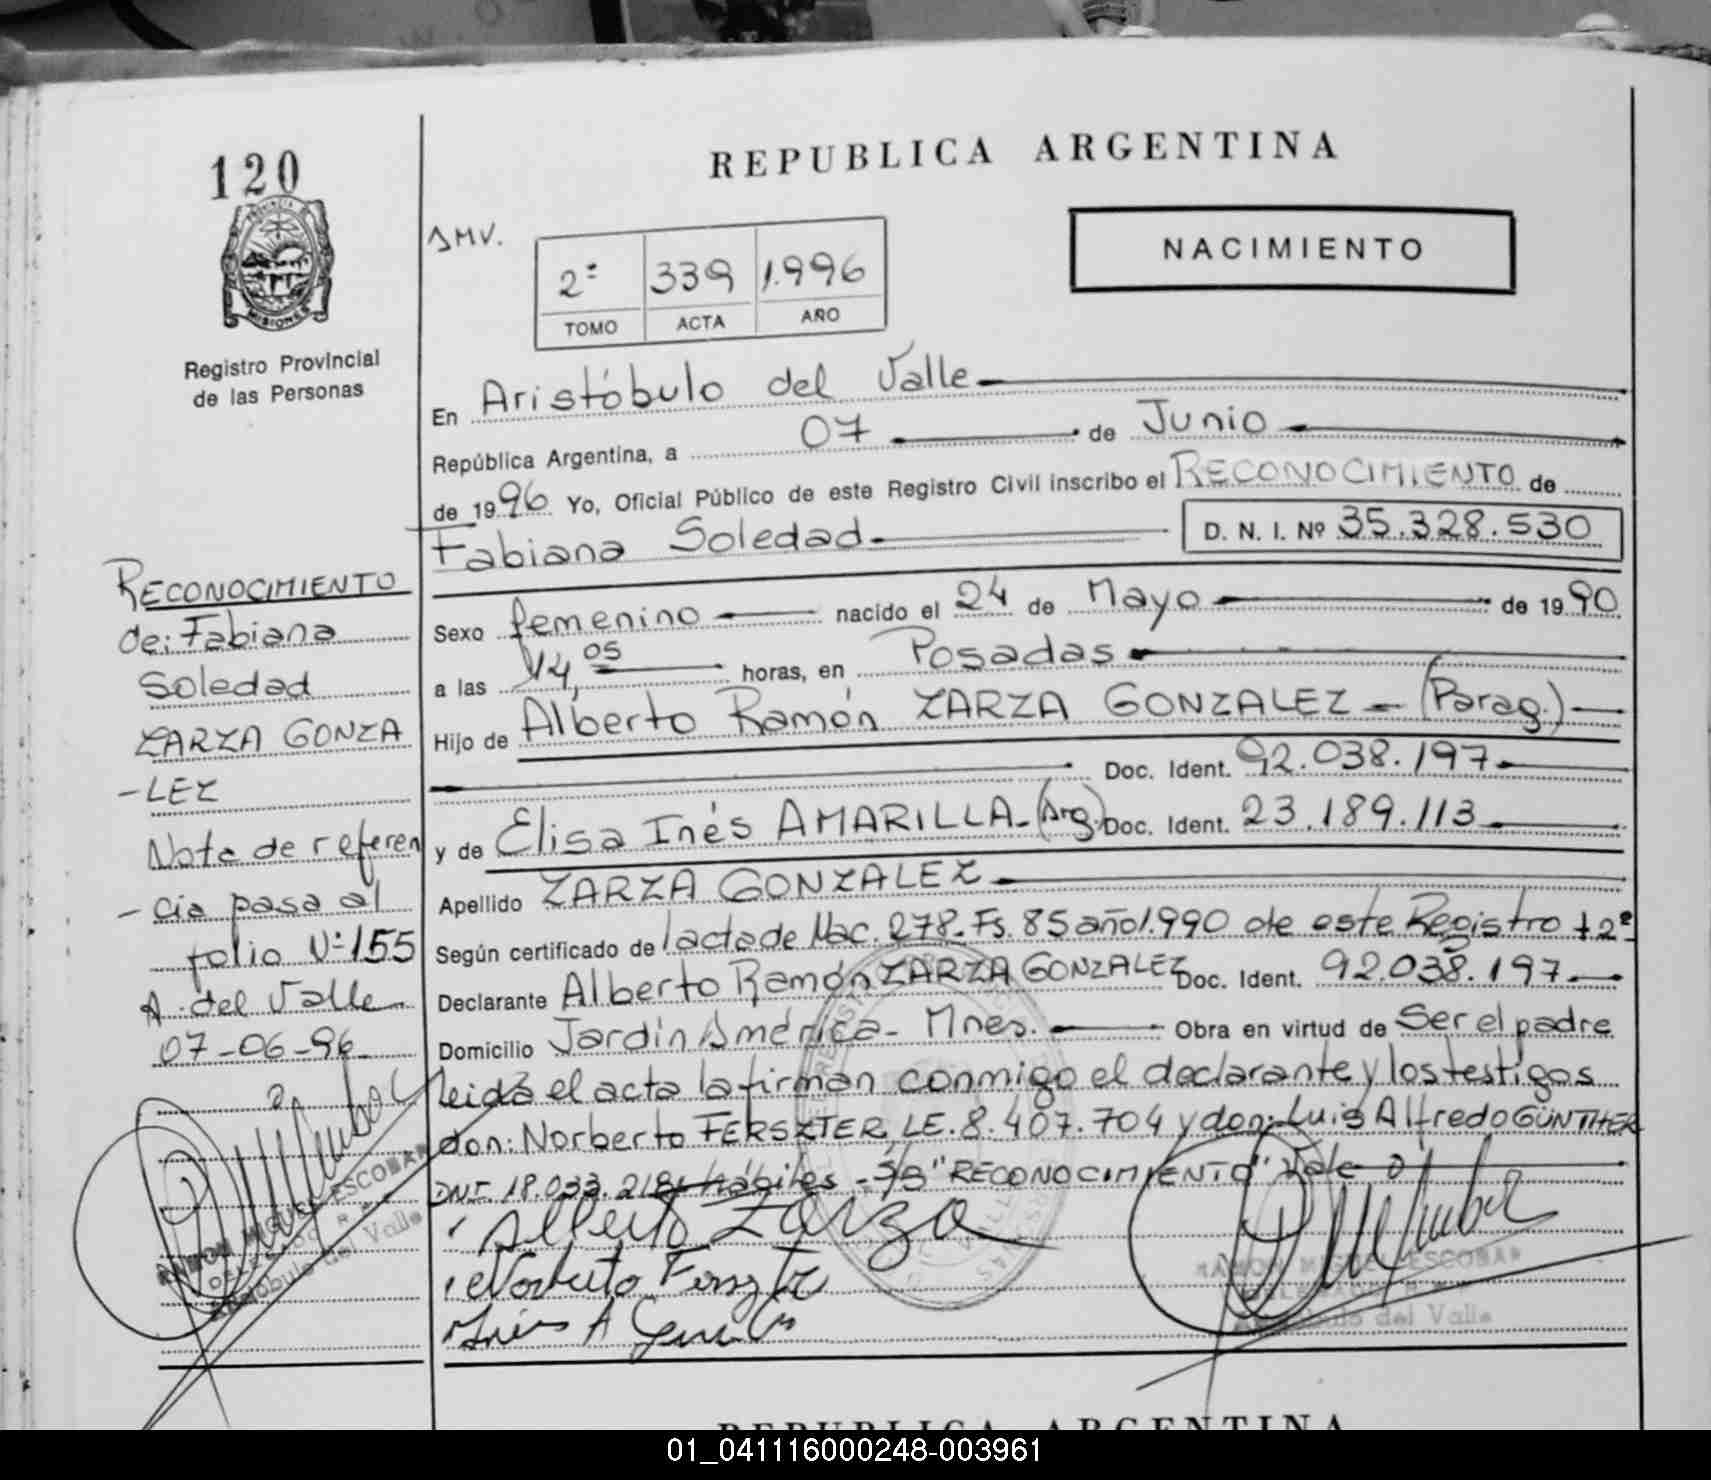 120
PROVINCIA DE
MISIONES
Registro Provincial
de las Personas
REPUBLICA ARGENTINA
NACIMIENTO
2º 339 1.996
TOMO ACTA AÑO
En Aristóbulo del Valle
República Argentina, a 07 de Junio
de 1996 Yo, Oficial Público de este Registro Civil inscribo el RECONOCIMIENTO de
Fabiana Soledad D. N. I. Nº 35.328.530
Sexo femenino nacido el 24 de Mayo de 1990
a las 14,05 horas, en Posadas
Hijo de Alberto Ramón ZARZA GONZALEZ - (Parag.)
Doc. Ident. 92.038.197
y de Elisa Inés AMARILLA - (Arg.) Doc. Ident. 23.189.113
Apellido ZARZA GONZALEZ
Según certificado de l acta de Nac. 278- Fs. 85 año 1.990 de este Registro t 2º
Declarante Alberto Ramón ZARZA GONZALEZ Doc. Ident. 92.038.197
Domicilio Jardín América - Mnes. Obra en virtud de Ser el padre
leida el acta la firman conmigo el declarante y los testigos
don: Norberto FERSZTER, LE. 8.407.704 y don: Luis Alfredo GÜNTHER
DNI 18.033.218, hábiles - "RECONOCIMIENTO" Vale
Alberto Zarza
Norberto Ferszter
RAMON MIGUEL ESCOBAR
Aristobulo del Valle
RECONOCIMIENTO
de: Fabiana
Soledad
ZARZA GONZA
-LEZ
Nota de referen
- cia pasa al
folio Nº 155
A. del Valle
07-06-96
RAMON MIGUEL ESCOBAR
Aristobulo del Valle
REPUBLICA ARGENTINA
01_041116000248-003961